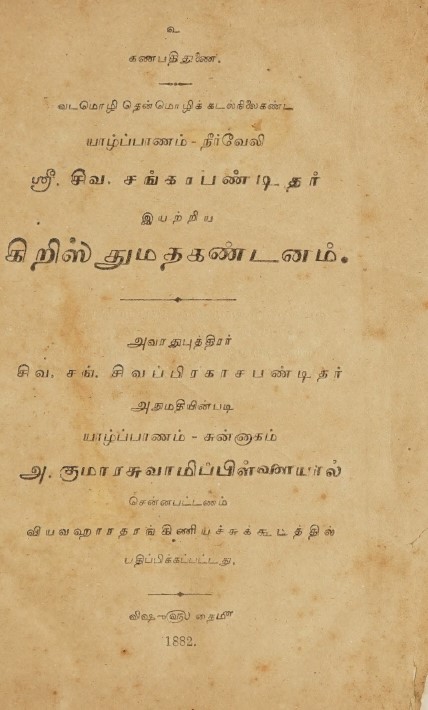 உ
கணபதிதுணை.
வடமொழி தென்மொழிக் கடல்நிலைகண்ட
யாழ்ப்பாணம் - நீர்வேலி
ஸ்ரீ. சிவ. சங்கரபண்டிதர்
இயற்றிய
கிறிஸ்துமதகண்டனம்.
அவரதுபுத்திரர்
சிவ. சங். சிவப்பிரகாசபண்டிதர்
அநுமதியின்படி
யாழ்ப்பாணம் - சுன்னாகம்
அ. குமாரசுவாமிப்பிள்ளையால்
சென்னபட்டணம்
வியவஹாரதரங்கிணியச்சுக்கூடத்தில்
பதிப்பிக்கப்பட்டது.
விஷு௵ தைமீ
1882.